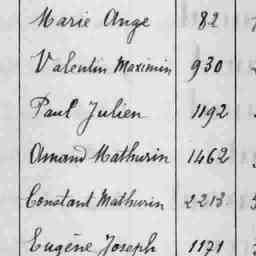 Marie Ange 82
Valentin Maximin 930
Paul Julien 1192
Amand Mathurin 1462
Constant Mathurin 2213
Eugène Joseph 1171